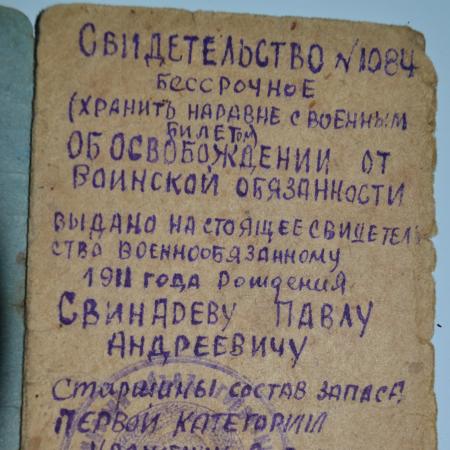 СВИДЕТЕЛЬСТВО №1084
БЕССРОЧНОЕ
(ХРАНИТЬ НАРАВНЕ С ВОЕННЫМ
БИЛЕТОМ)
ОБ ОСВОБОЖДЕНИИ ОТ
ВОИНСКОЙ ОБЯЗАННОСТИ
ВЫДАНО НАСТОЯЩЕЕ СВИДЕТЕЛЬ
СТВО ВОЕННООБЯЗАННОМУ
1911 ГОДА РОЖДЕНИЯ
СВИНАРЕВУ ПАВЛУ
АНДРЕЕВИЧУ
Старшины СОСТАВ ЗАПАСА
ПЕРВОЙ КАТЕГОРИИ